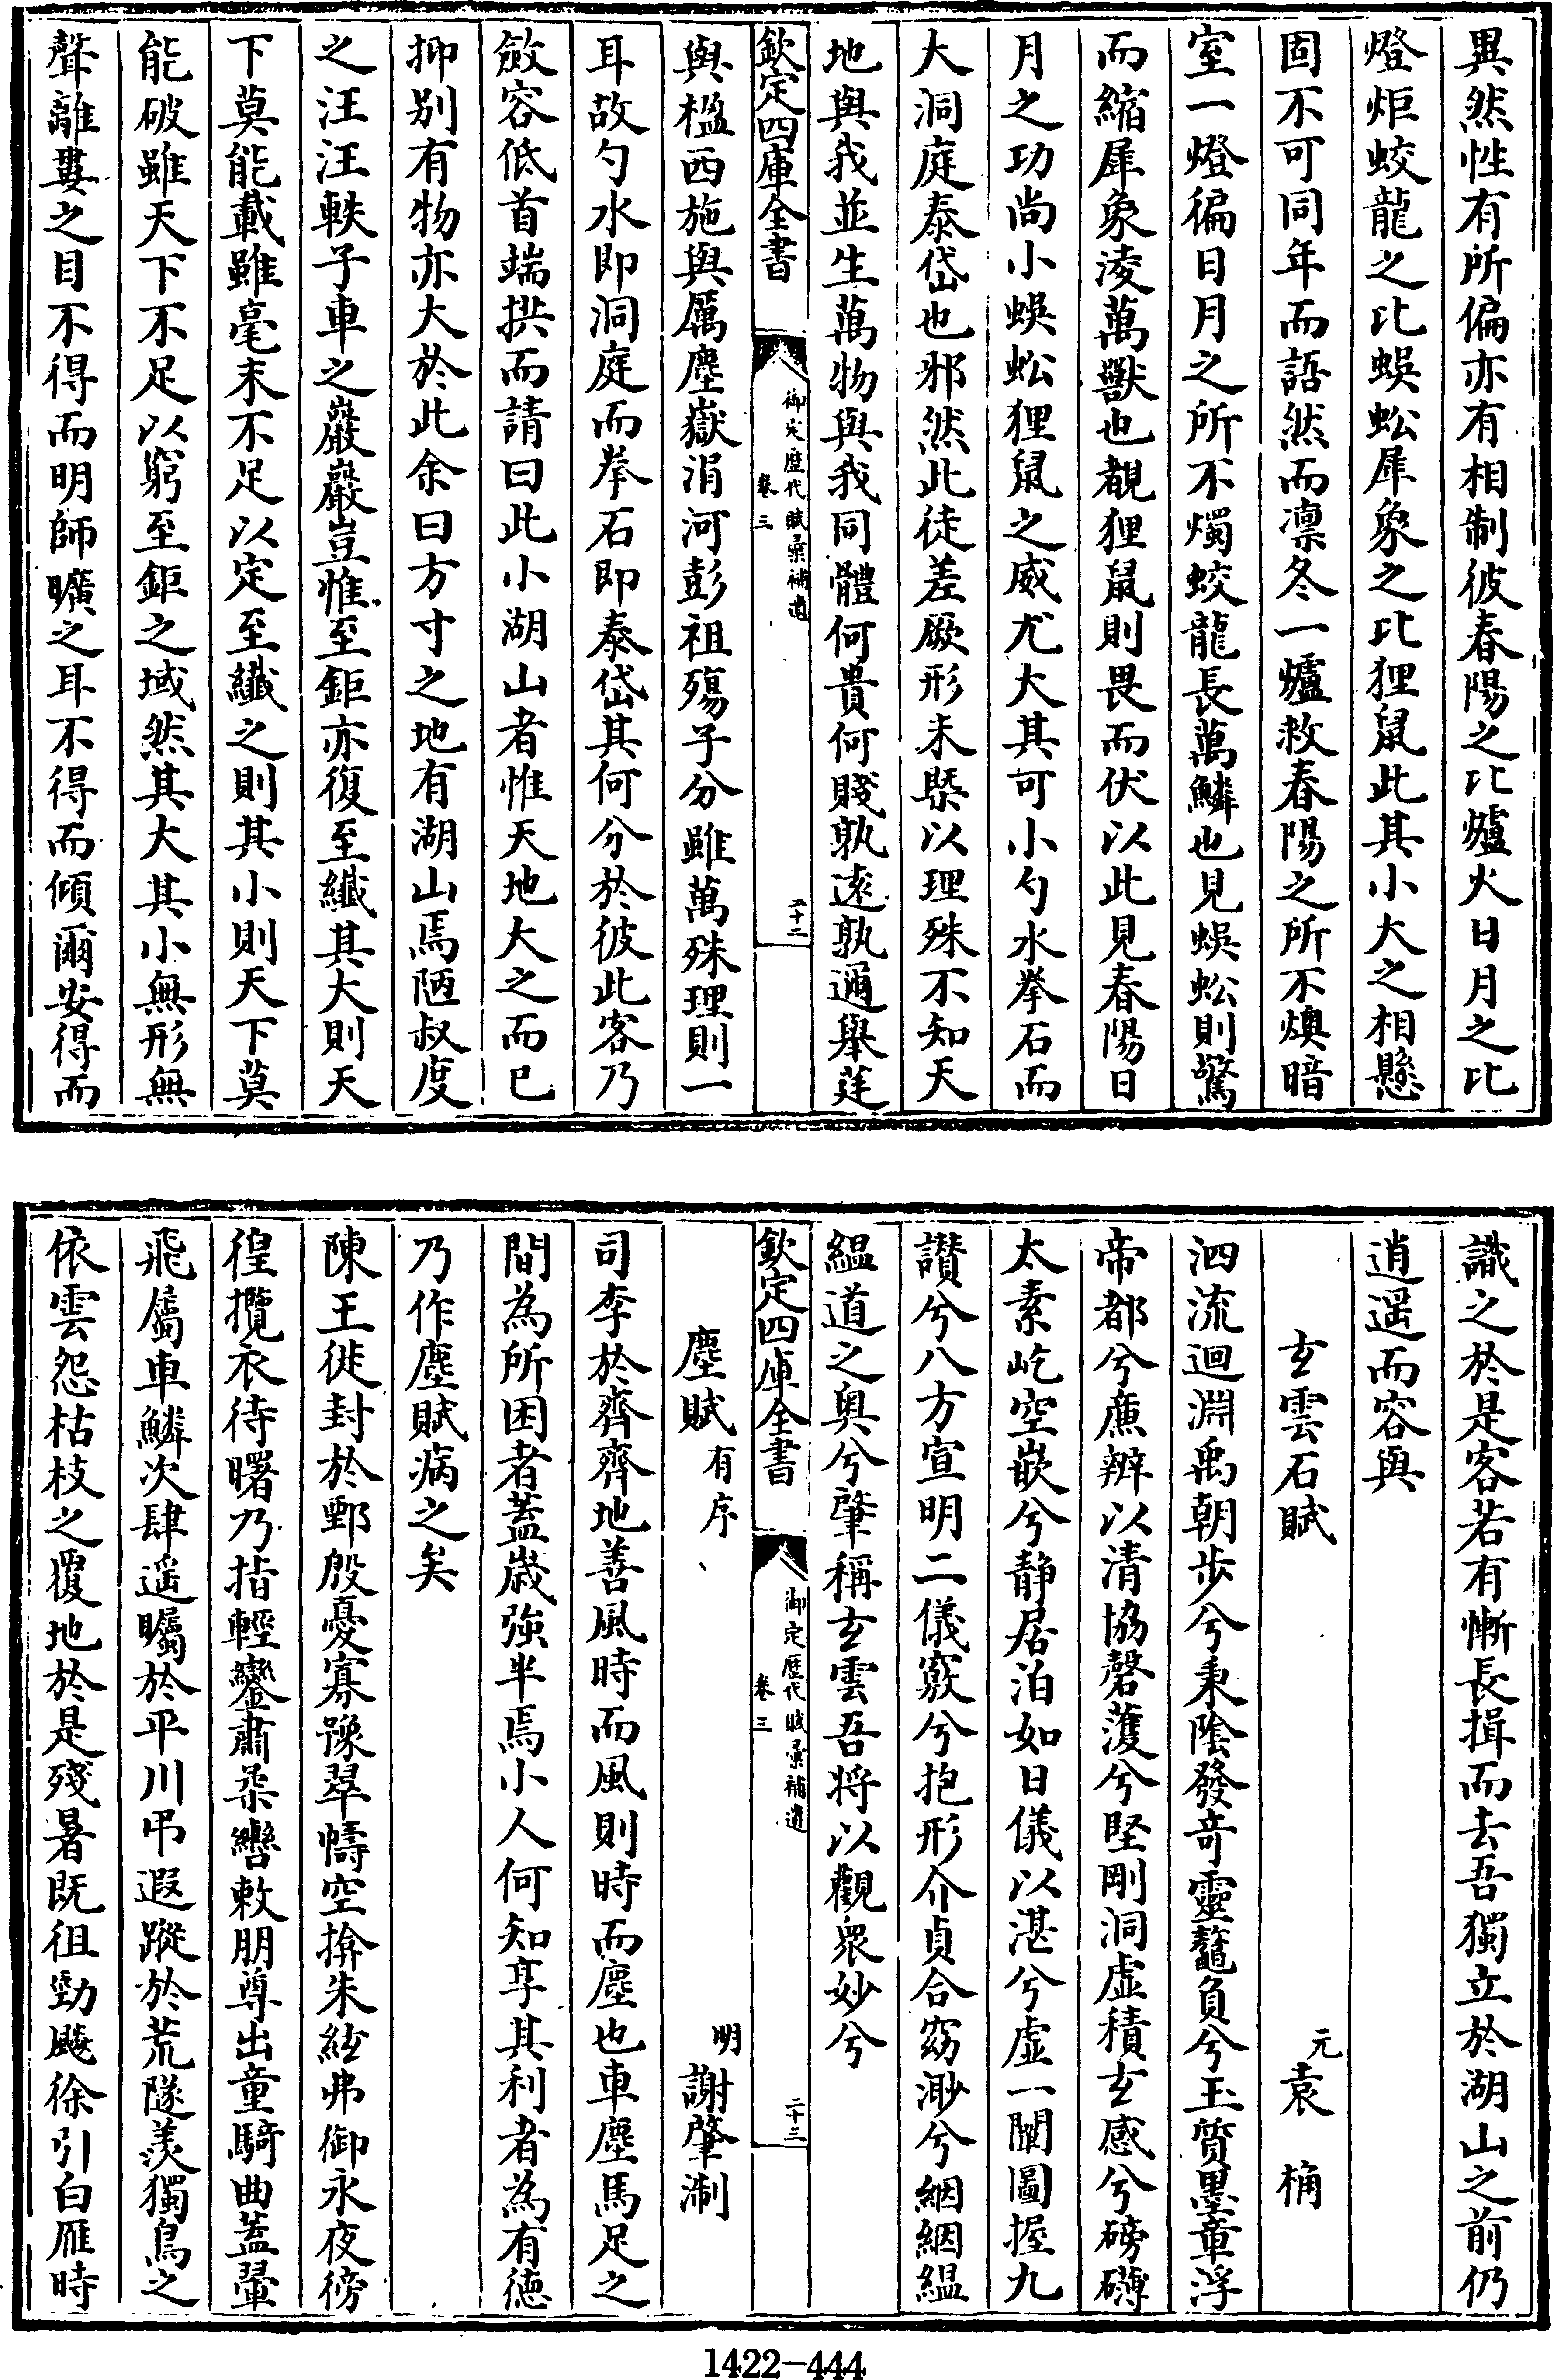 異然性有所偏亦有相制彼春陽之比爐火日月之比
燈炬蛟龍之比蜈蚣犀象之比狸鼠此其小大之相懸
固不可同年而語然而凛冬一爐救春陽之所不燠暗
室一燈徧日月之所不燭蛟龍長萬鱗也見蜈蚣則驚
而縮犀象淩萬獸也覩狸鼠則畏而伏以此見春陽日
月之功尚小蜈蚣狸鼠之威尤大其可小勺水拳石而
大洞庭泰岱也邪然此徒差厥形未槩以理殊不知天
地與我並生萬物與我同體何貴何賤孰逺孰邇舉莛
欽定四庫全書
御定歷代賦彙補遺
卷三
二十二
與楹西施與厲塵嶽涓河彭祖殤子分雖萬殊理則一
耳故勺水即洞庭而拳石即泰岱其何分於彼此客乃
斂容低首端拱而請曰此小湖山者惟天地大之而已
抑别有物亦大於此余曰方寸之地有湖山焉陋叔度
之汪汪軼子車之巖巖豈惟至鉅亦復至纎其大則天
下莫能載雖毫末不足以定至纎之則其小則天下莫
能破雖天下不足以窮至鉅之域然其大其小無形無
聲離婁之目不得而明師曠之耳不得而傾爾安得而
識之於是客若有慚長揖而去吾獨立於湖山之前仍
逍遥而容與
玄雲石賦
元袁桷
泗流迴淵禹朝步兮秉陰發奇靈鼇負兮玉質墨章浮
帝都兮廉辨以清協磬頀兮堅剛洞虚積玄感兮磅礴
太素屹空嵌兮静居泊如日儀以湛兮虚一闡圖握九
讃兮八方宣明二儀竅兮抱形介貞合窈渺兮絪絪緼
緼道之奥兮肇稱玄雲吾将以觀衆妙兮
欽定四庫全書
御定歷代賦彙補遺
卷三
二十三
塵賦有序
明謝肇淛
司李於齊齊地善風時而風則時而塵也車塵馬足之
間為所困者蓋歲强半焉小人何知享其利者為有德
乃作塵賦病之矣
陳王徙封於鄄殷憂寡豫翠幬空揜朱絃弗御永夜徬
徨攬衣待曙乃指輕鑾肅柔轡敕朋尊出童騎曲蓋翬
飛屬車鱗次肆遥矚於平川弔遐蹤於荒隧羡獨鳥之
依雲怨枯枝之覆地於是殘暑既徂勁飈徐引白雁時
1422-444